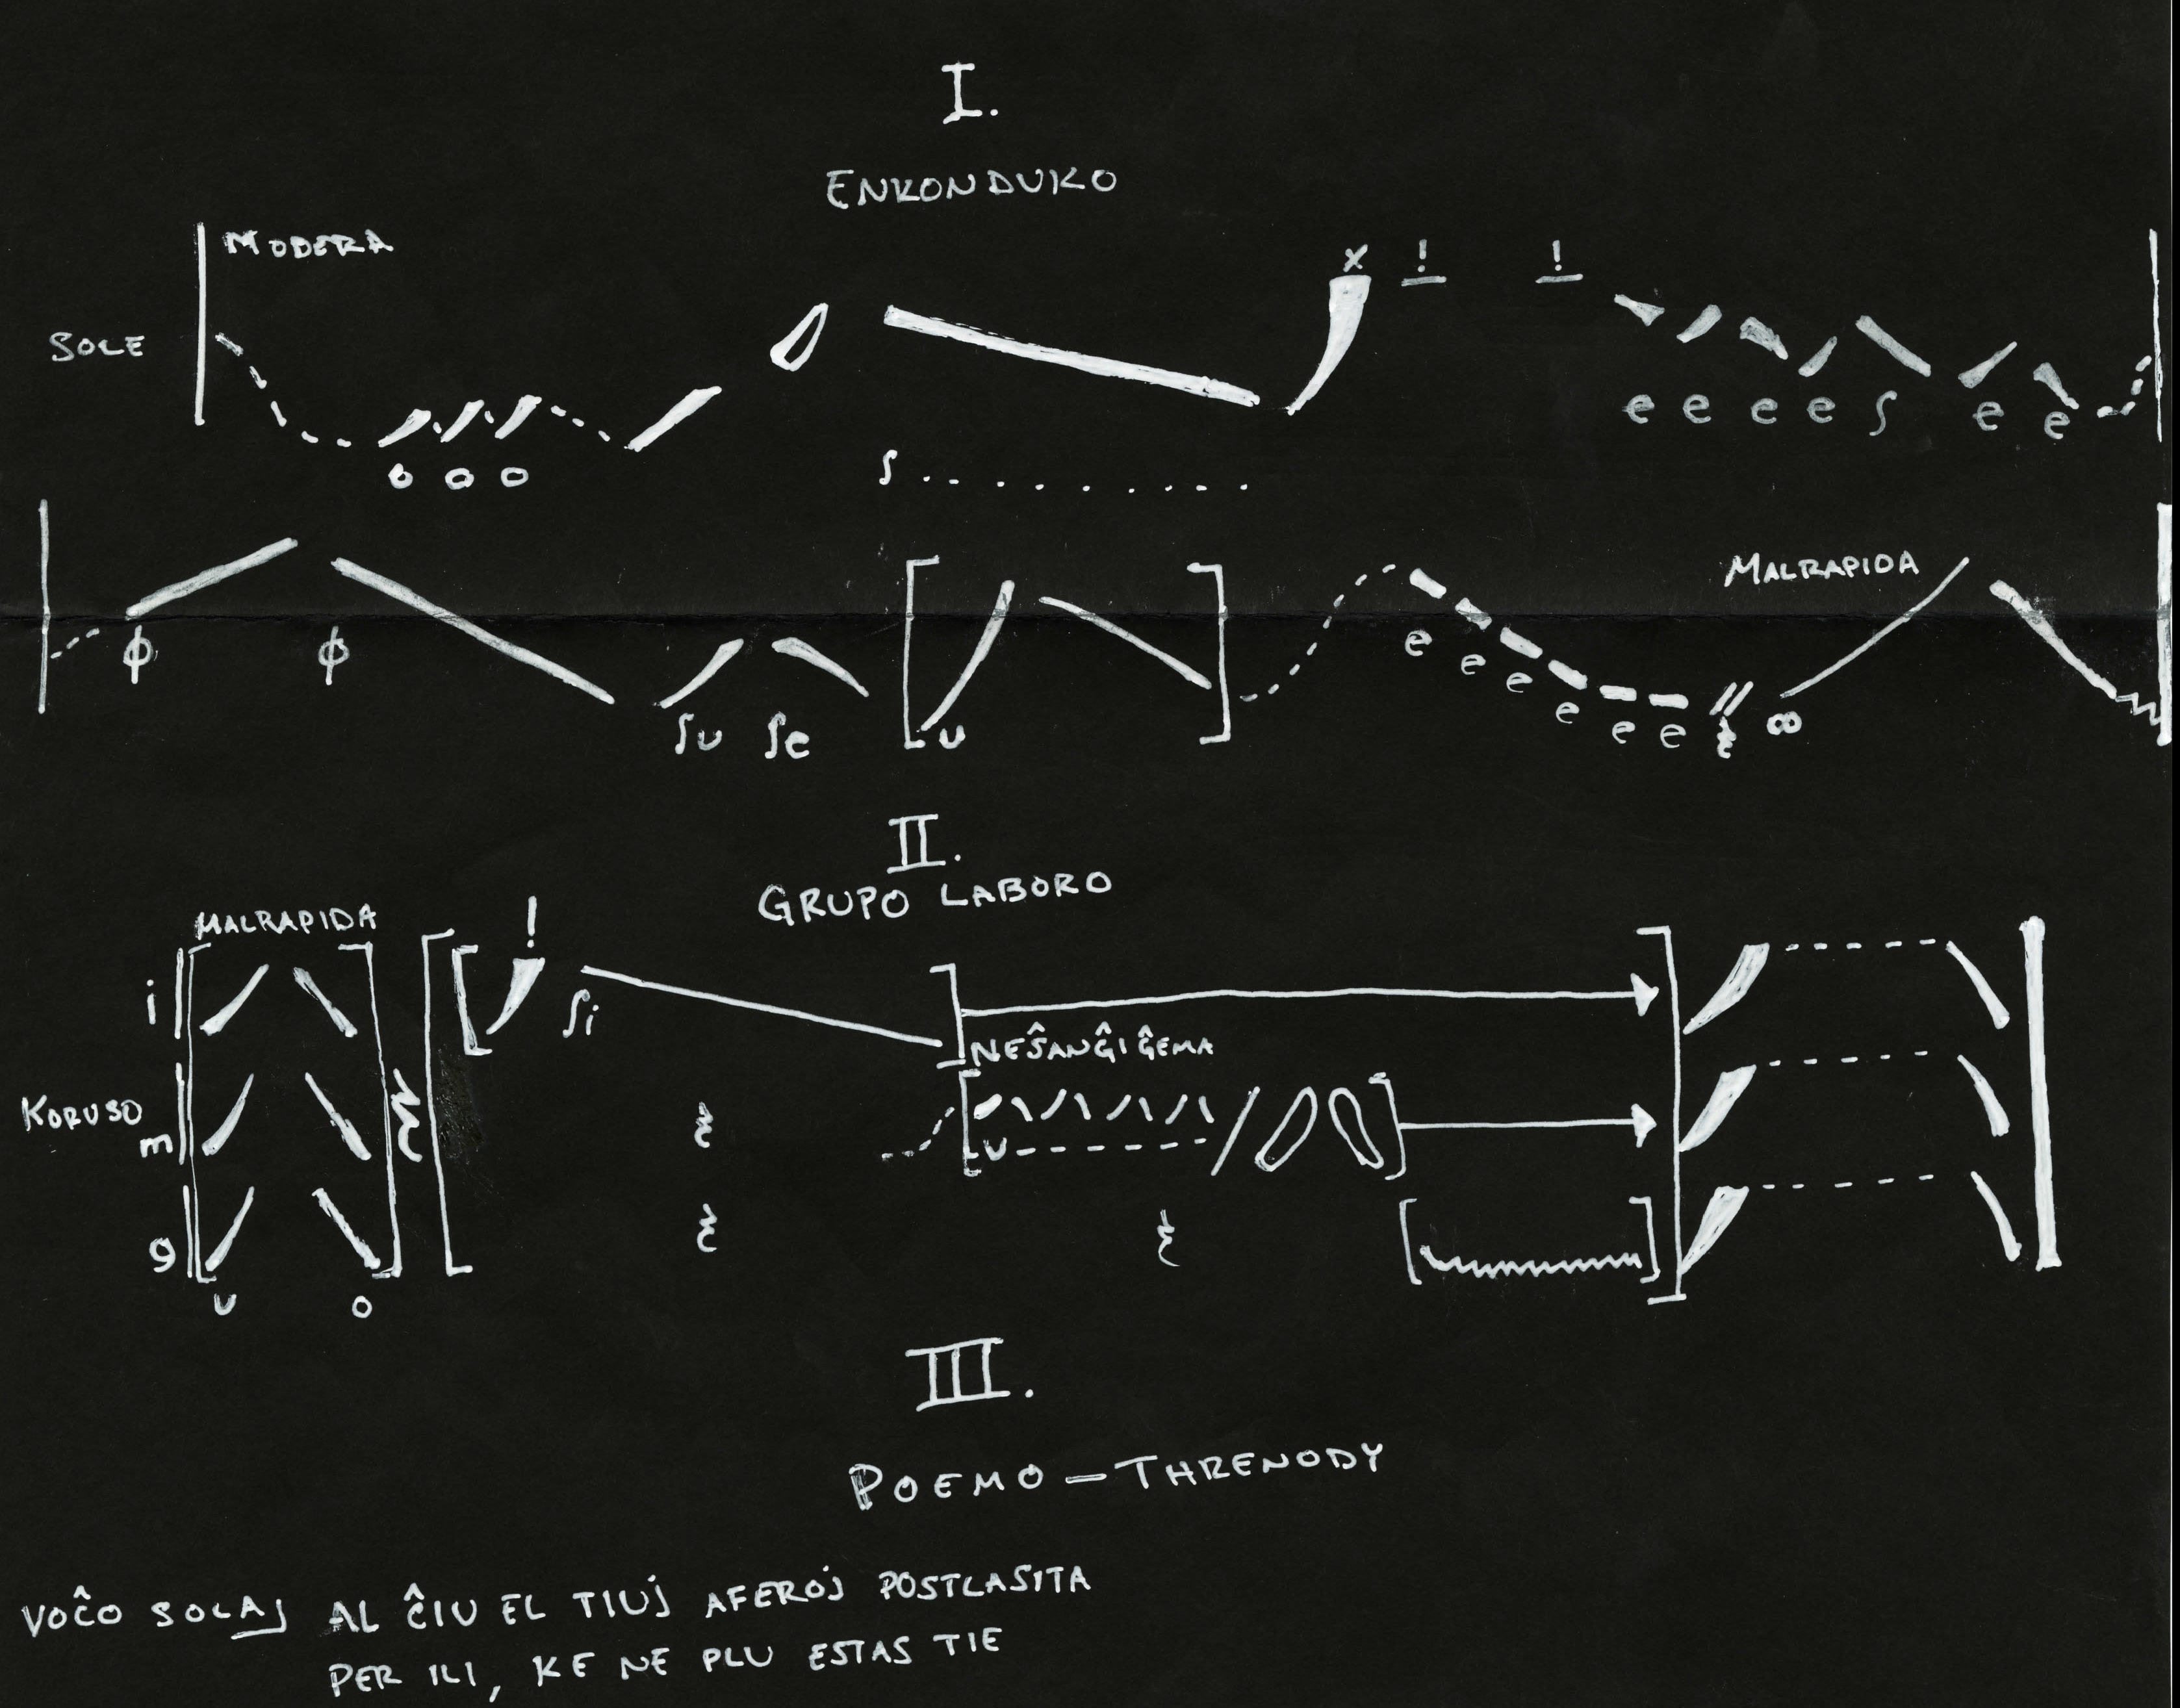 I.
ENKONDUKO
MODERA
x ! !
SOLE
e e e e ʃ e e
o o o
ʃ
MALRAPIDA
ɸ ɸ
e e e e e e
ʃu ʃe u ∞
II.
GRUPO LABORO
MALRAPIDA !
i ʃi
NEŜANĜIĜEMA
KORUSO
m u
g
u o
III.
POEMO – THRENODY
VOĈO SOLAJ AL ĈIU EL TIUJ AFEROJ POSTLASITA
PER ILI, KE NE PLU ESTAS TIE